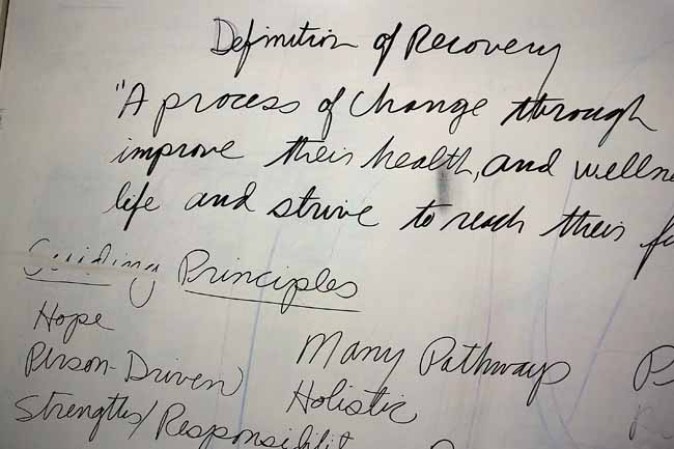 Definition of Recovery
"A process of change through
improve their health, and welln
life and strive to reach their f
Guiding Principles
Hope
Many Pathways
Person-Driven
Holistic
Strengths/Responsibilit